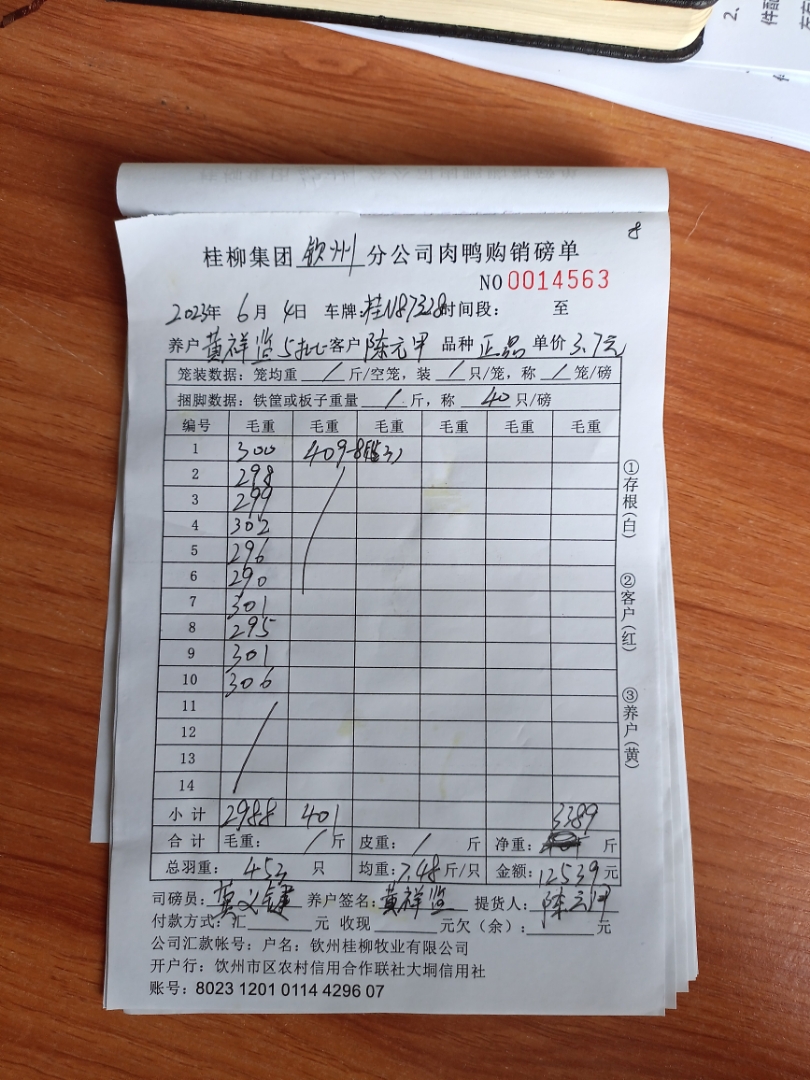 2、
件
8
桂柳集团 钦州 分公司肉鸭购销磅单
NO 0014563
2023年 6月 4日 车牌:桂N87328 时间段: 至
养户 黄祥监 5批 客户 陈元甲 品种 正品 单价 3.7元
笼装数据: 笼均重 / 斤/空笼, 装 / 只/笼, 称 / 笼/磅
捆脚数据: 铁筐或板子重量 / 斤, 称 40 只/磅
编号 毛重 毛重 毛重 毛重 毛重 毛重
1 300 409-8
2 298
3 299
4 302
5 296
6 290
7 301
8 295
9 301
10 306
11
12
13
14
小计 2988 401 3389
合计 毛重: / 斤 皮重: / 斤 净重: 斤
总羽重: 453 只 均重: 7.48 斤/只 金额: 12539 元
司磅员: 莫义键 养户签名: 黄祥监 提货人: 陈元甲
付款方式: 汇 元 收现 元欠(余): 元
公司汇款帐号: 户名: 钦州桂柳牧业有限公司
开户行: 钦州市区农村信用合作联社大垌信用社
账号: 8023 1201 0114 4296 07
①存根(白)
②客户(红)
③养户(黄)